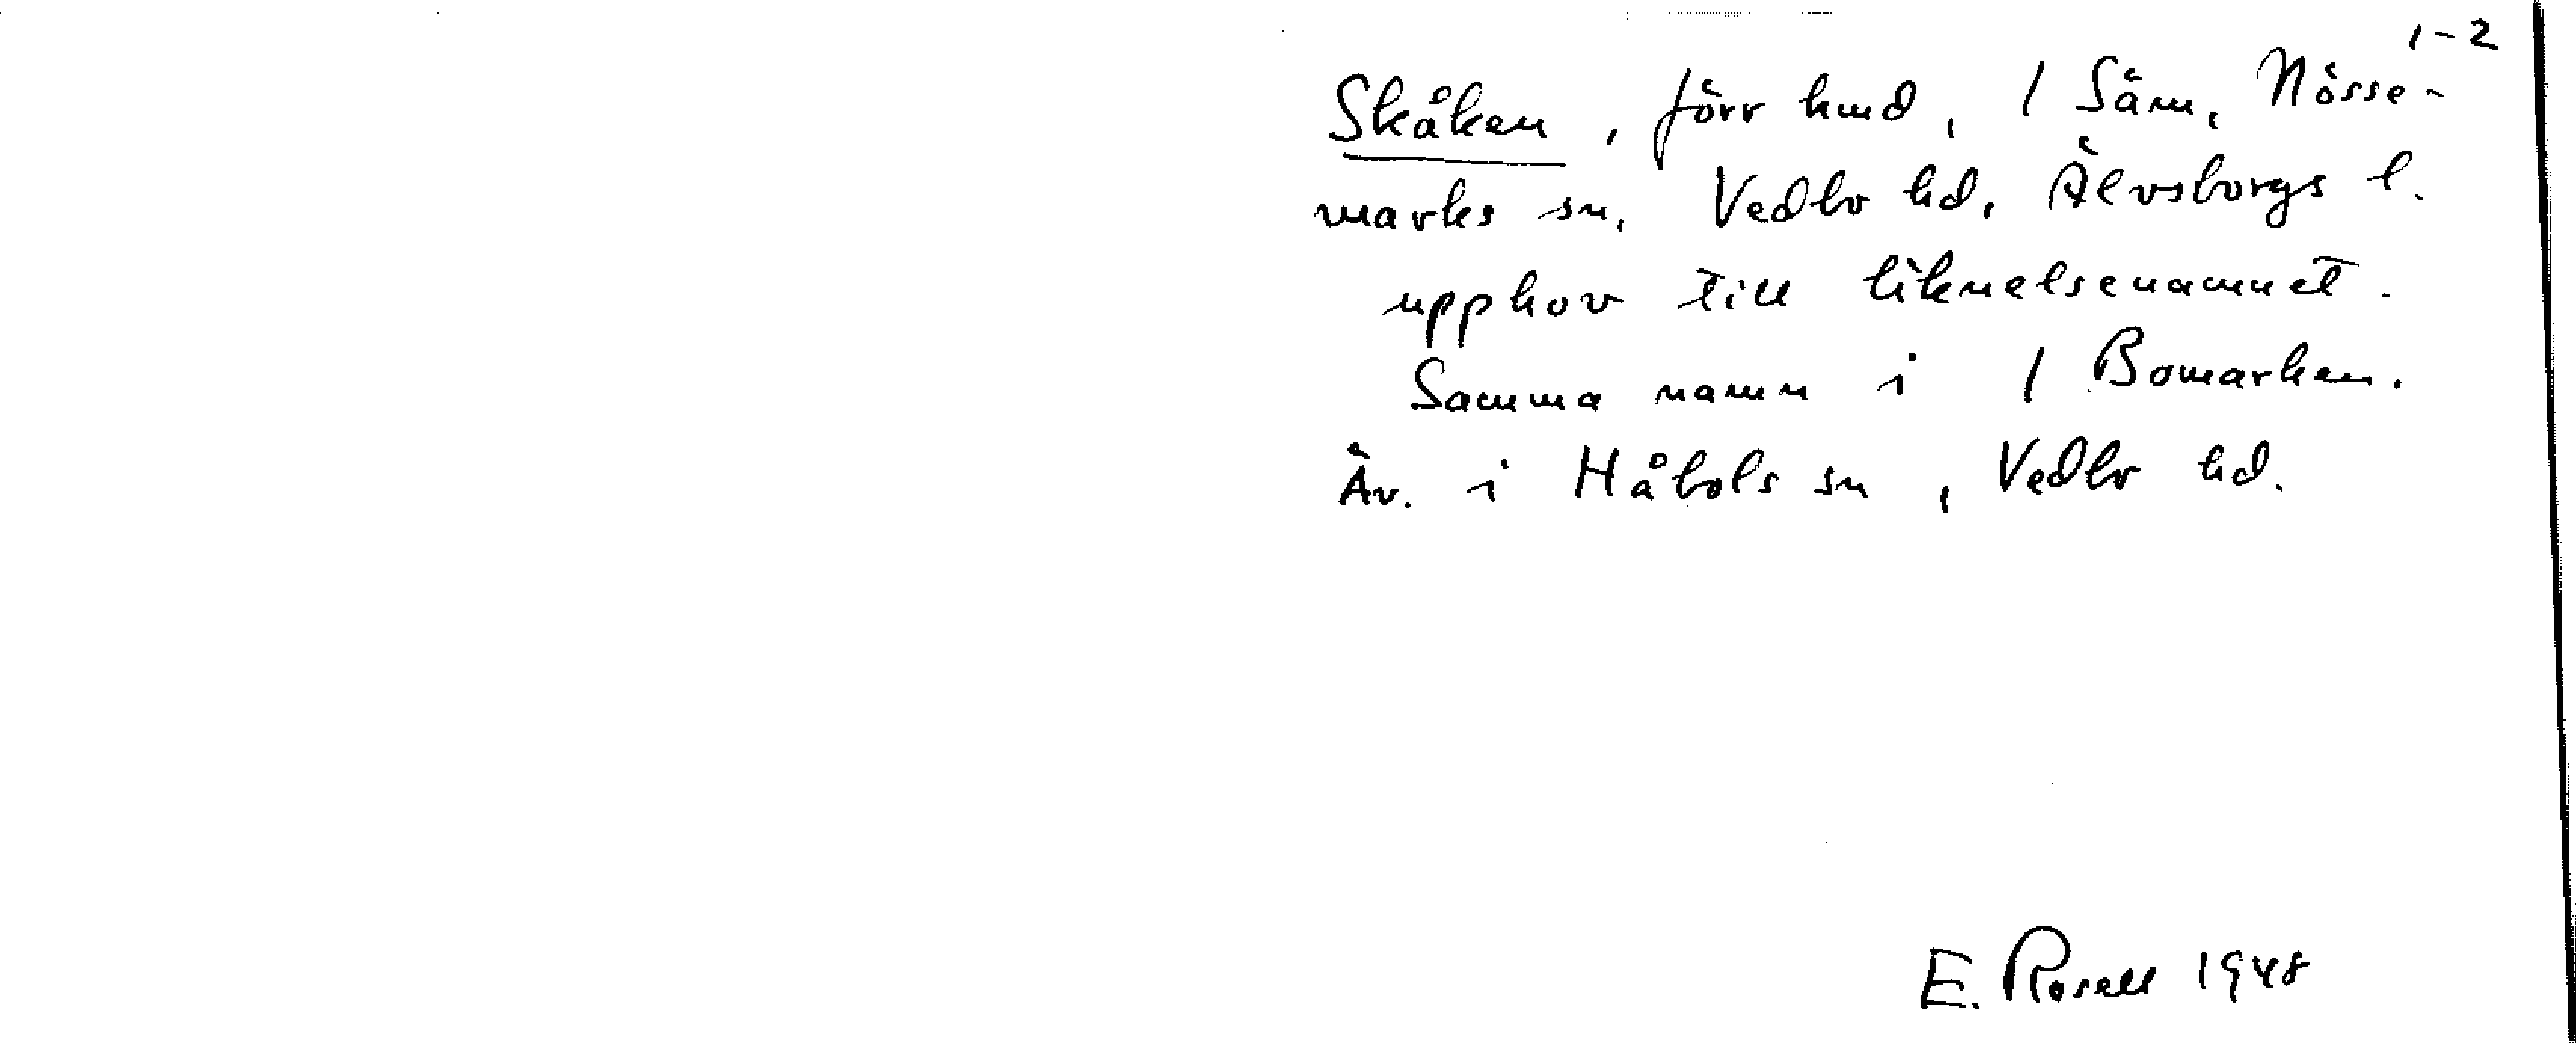 1-2
Skåken, förr hmd, / Säm, Nösse-
marks sn, Vedbo hd, Älvsborgs l.
upphov till liknelsenamnet.
Samma namn i / Bomarken.
Äv. i Håbols sn, Vedbo hd.
E. Rosell 1948